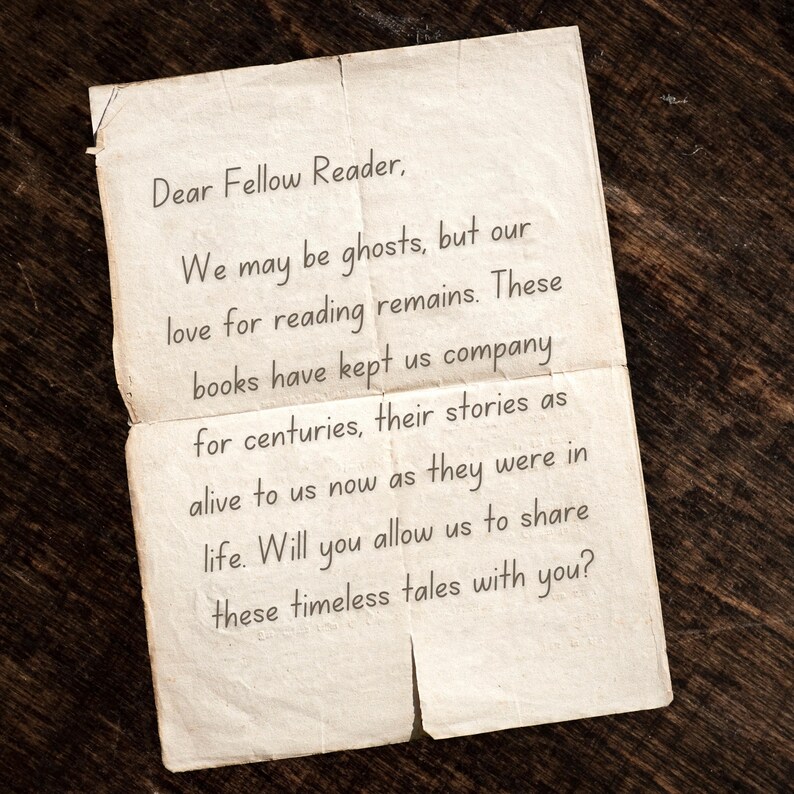 Dear Fellow Reader,
We may be ghosts, but our
love for reading remains. These
books have kept us company
for centuries, their stories as
alive to us now as they were in
life. Will you allow us to share
these timeless tales with you?